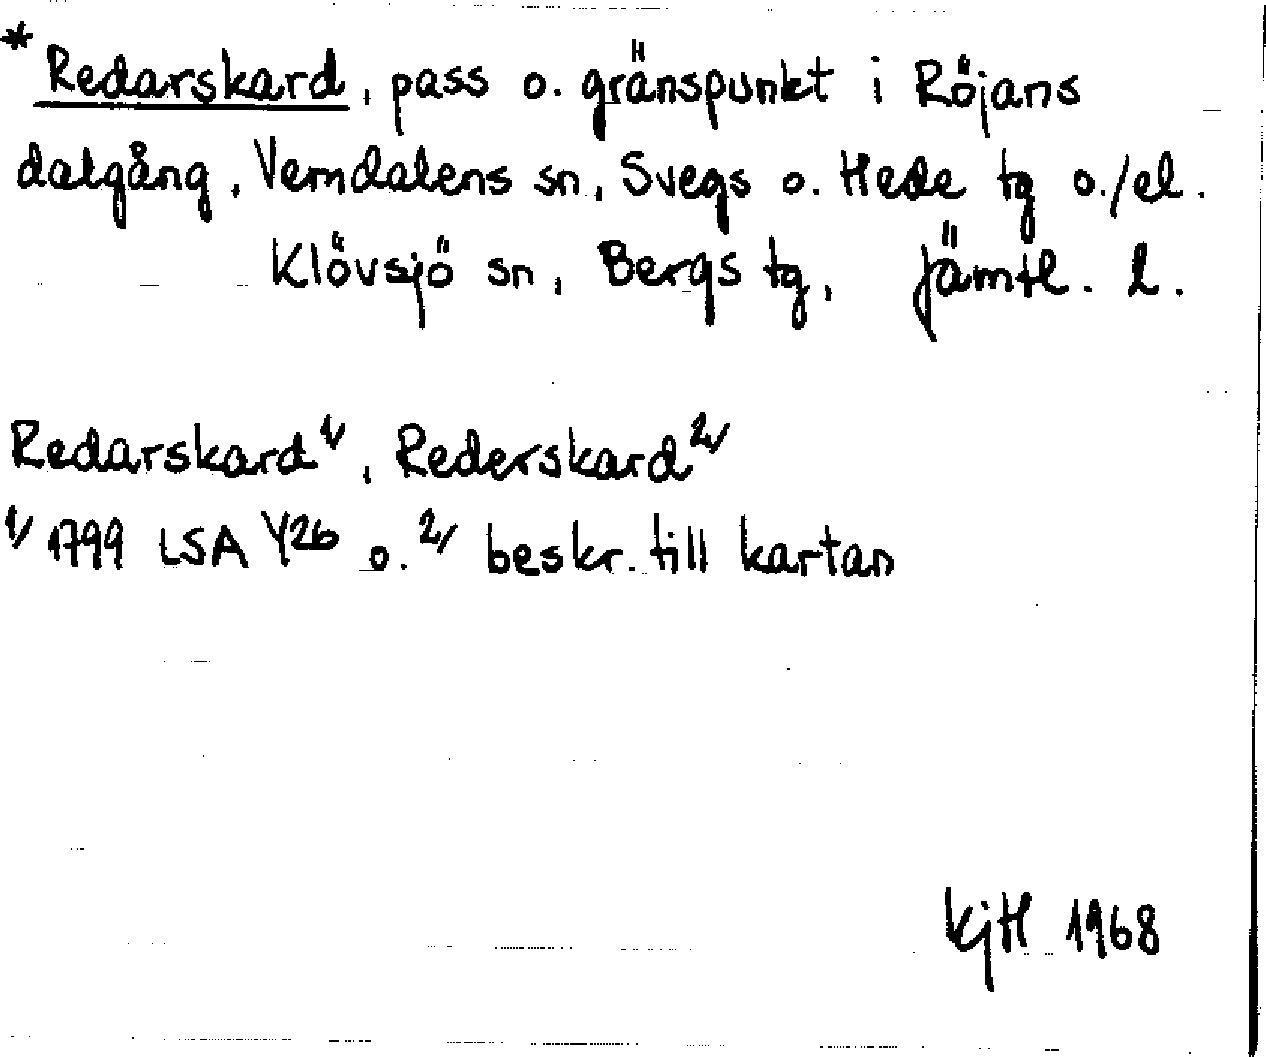 * Redarskard, pass o. gränspunkt i Röjans
dalgång, Vemdalens sn, Svegs o. Hede tg o./el.
Klövsjö sn, Bergs tg, Jämtl. l.
Redarskard 1/, Rederskard 2/
1/ 1799 LSA Y26 o. 2/ beskr. till kartan
KjH 1968